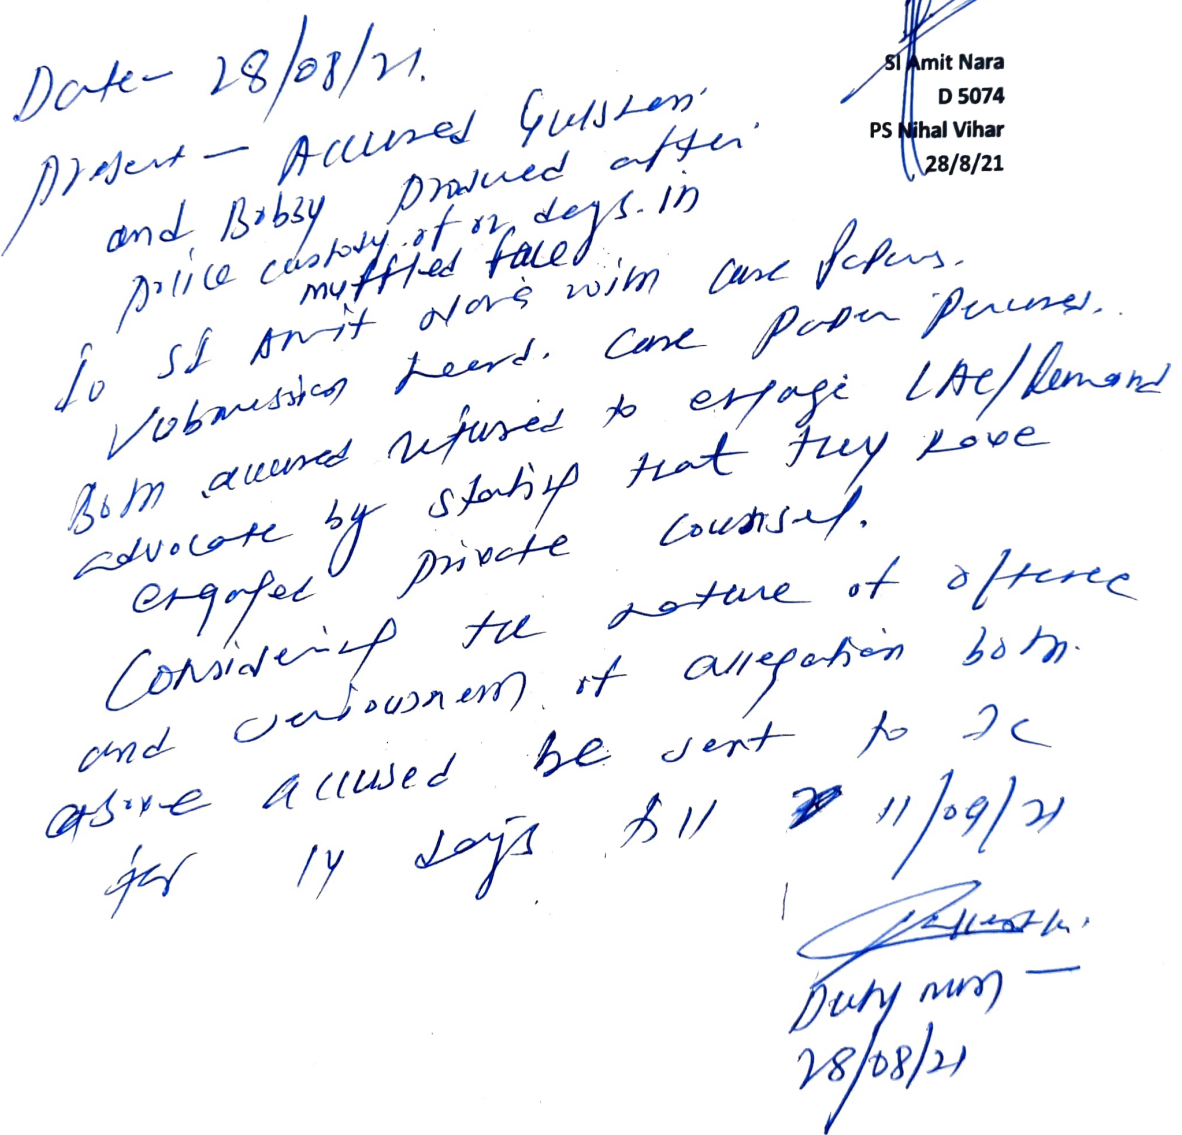 SI Amit Nara
D 5074
PS Nihal Vihar
28/8/21
Date- 28/08/21.
Present - Accused Gulshan
and Bobby produced after
police custody of 02 days. in
muffled face
Io SI Amit along with case papers.
Submission heard. Case Paper Perused.
Both accused refused to engage LAC/Remand
advocate by stating that they have
engaged private counsel.
Considering the nature of offence
and seriousness of allegation both
above accused be sent to JC
for 14 days till 11/09/21
Duty MM -
28/08/21